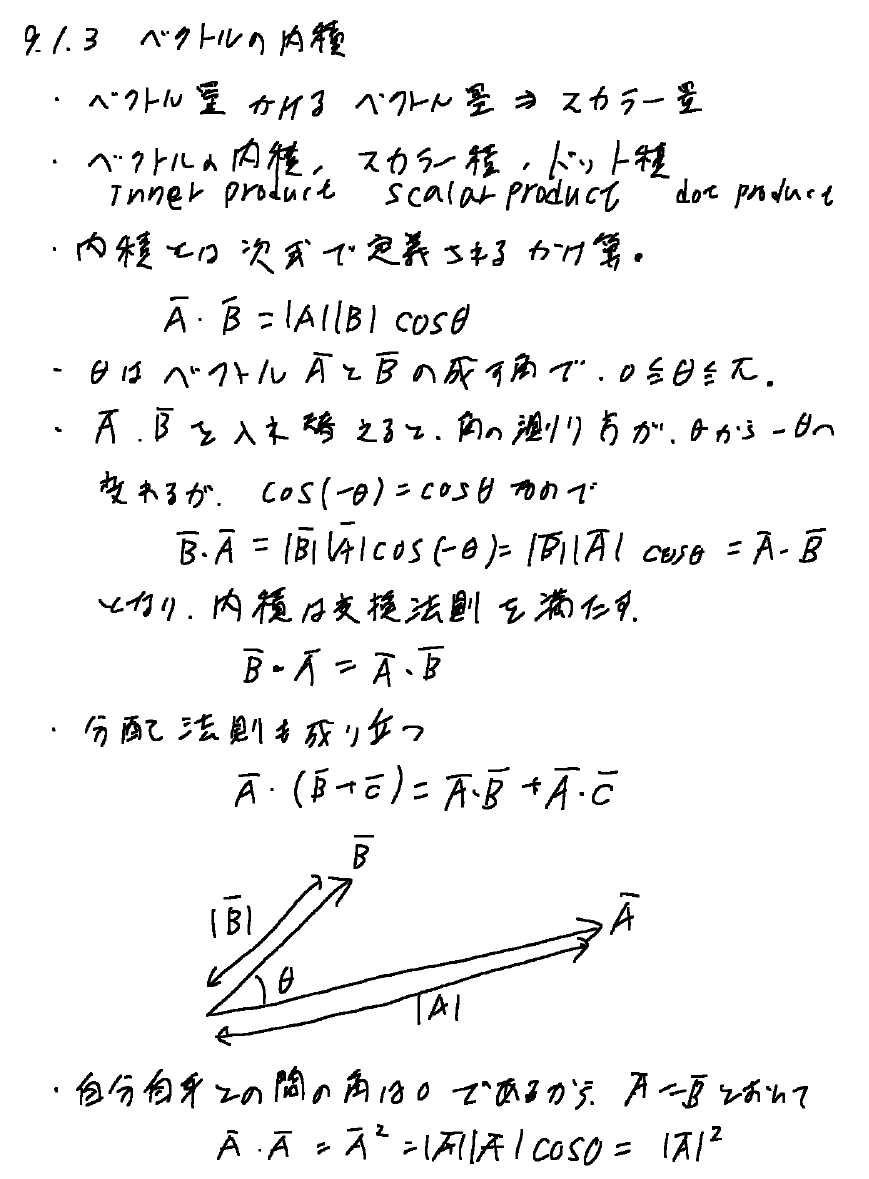 9.1.3 ベクトルの内積
・ベクトル量 かける ベクトル量 ⇒ スカラー量
・ベクトルの内積, スカラー積, ドット積
Inner product scalar product dot product
・内積とは次式で定義されるかけ算。
A̅・B̅ = |A||B| cosθ
・θはベクトル A̅ と B̅ の成す角で、0≦θ≦π.
・A̅, B̅ を入れ替えると、角の測り方が、θから-θへ
変わるが、cos(-θ) = cosθ なので
B̅・A̅ = |B̅||A̅|cos(-θ) = |B̅||A̅| cosθ = A̅・B̅
となり、内積は交換法則を満たす.
B̅・A̅ = A̅・B̅
・分配法則も成り立つ
A̅・(B̅+C̅) = A̅・B̅ + A̅・C̅
B̅
|B̅|
A̅
θ
|A|
・自分自身との間の角は0であるから、A̅=B̅とおいて
A̅・A̅ = A̅² = |A̅||A̅| cos0 = |A̅|²